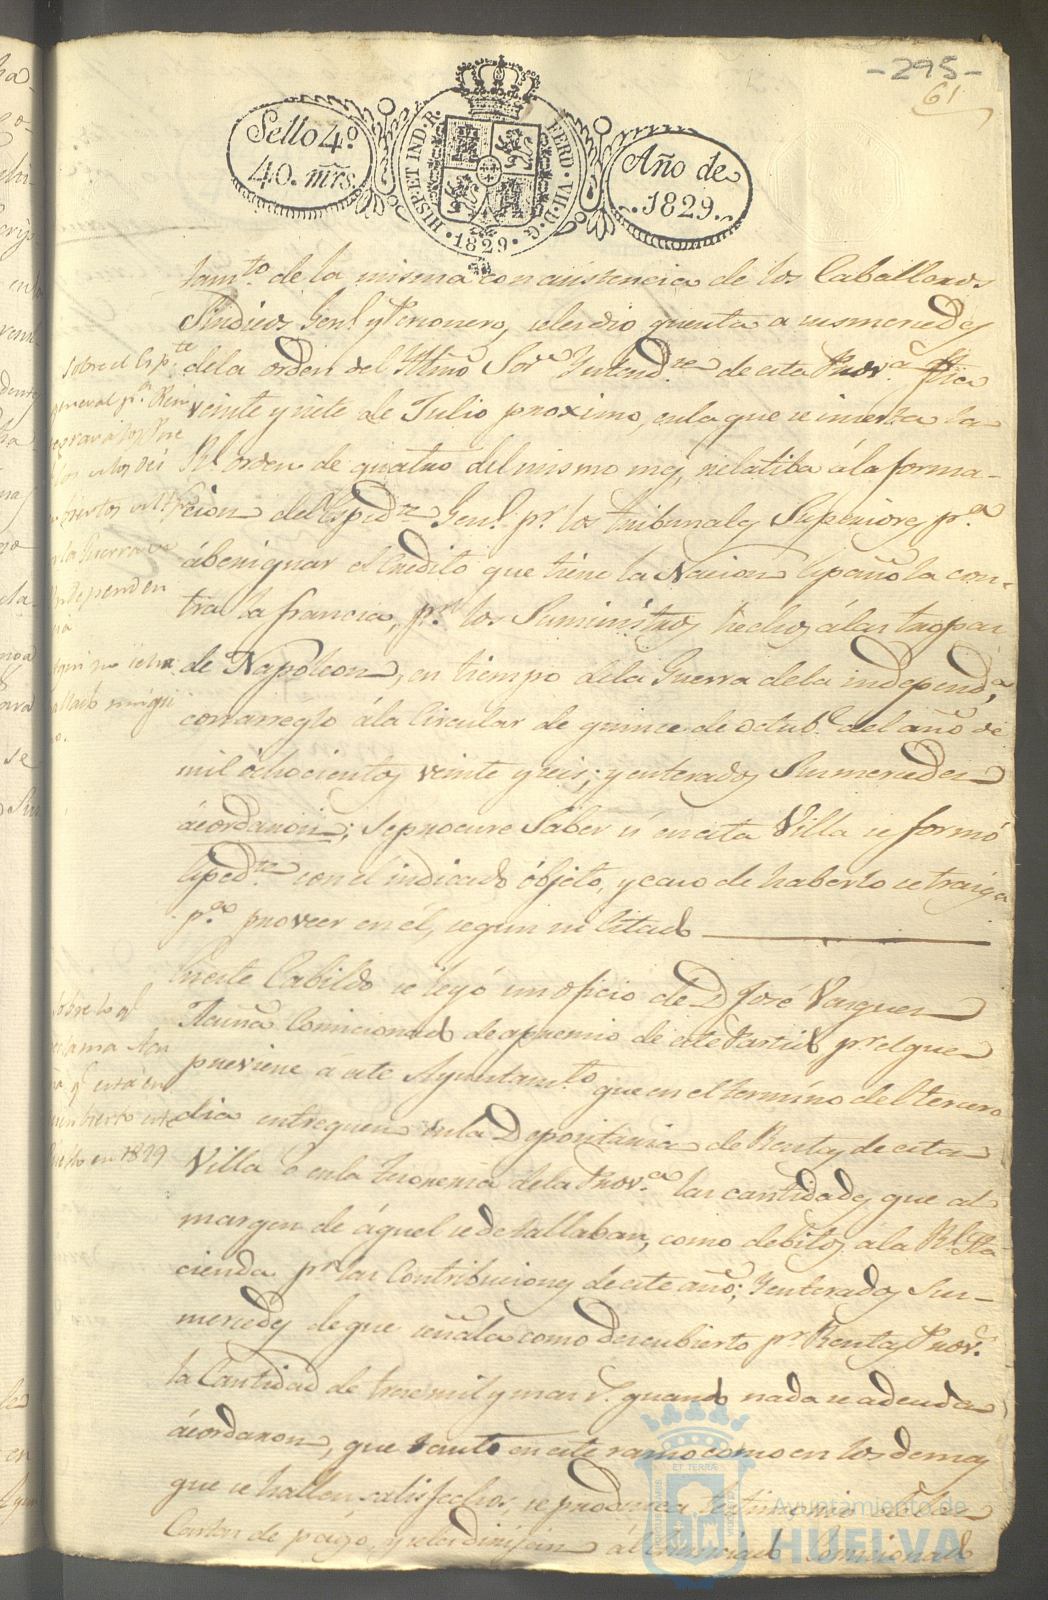 -295-
61
Sello 4.º
40. mrs.
HISP. ET IND. R.
FERD. VII. D. G.
·1829·
Año de
1829.
tam.to de la misma con asistencia de los Caballeros
Sindicos Gen.l y Personero, se les dio quenta a sus mercedes
de la orden del Yltmo Sor Yntend.te de esta Prov.a fha
veinte y siete de Julio proximo, en la que se inserta la
Rl. orden de quatro del mismo mes, relatiba á la forma-
cion del Esped.te Gen.l p.r los tribunales Superiores p.a
ábeniguar el Credito que tiene la Nacion Española con-
tra la francia, p.r los Suministros hechos á las tropas
de Napoleon, en tiempo de la Guerra de la independ.a,
con arreglo á la Circular de quince de octub.e del año de
mil ochocientos veinte y seis; y enterados Sus mercedes
ácordaron; se procure Saber si en esta Villa se formó
Esped.te con el indicado óbjeto, y caso de haberlo se traiga
p.a proveer en él, segun su Estado
Sobre el Esp.te
general p.a Rein
tegrar á los Pue
blos en los des
cubiertos
en la Guerra de
Independen
cia
Aqui no se ha
hallado ningu
no.
En este Cabildo se leyó un oficio de D. José Vazquez
Acuña Comicionado de apremio de este Partido p.r el que
previene á este Ayuntam.to que en el termino del tercero
dia entreguen en la Depositaria de Rentas de esta
Villa o en la tesoreria de la Prov.a las cantidades que al
margen de áquel se detallaban, como debitos á la Rl. Ha-
cienda p.r las Contribuciones de este año; Y enterados Sus
mercedes de que señala como descubierto p.r Rentas Prov.s
la Cantidad de trese mil y mas r.s quando nada se adeuda
ácordaron, que tanto en este ramo como en los demas
que se hallen satisfechos se produzca testimonio de las
Cartas de págo, y se le dirijan ál Comicionado
Sobre lo q.
reclama Acu
ña q. está en
descubierto este
Pueblo en 1829
Ayuntamiento de
HUELVA